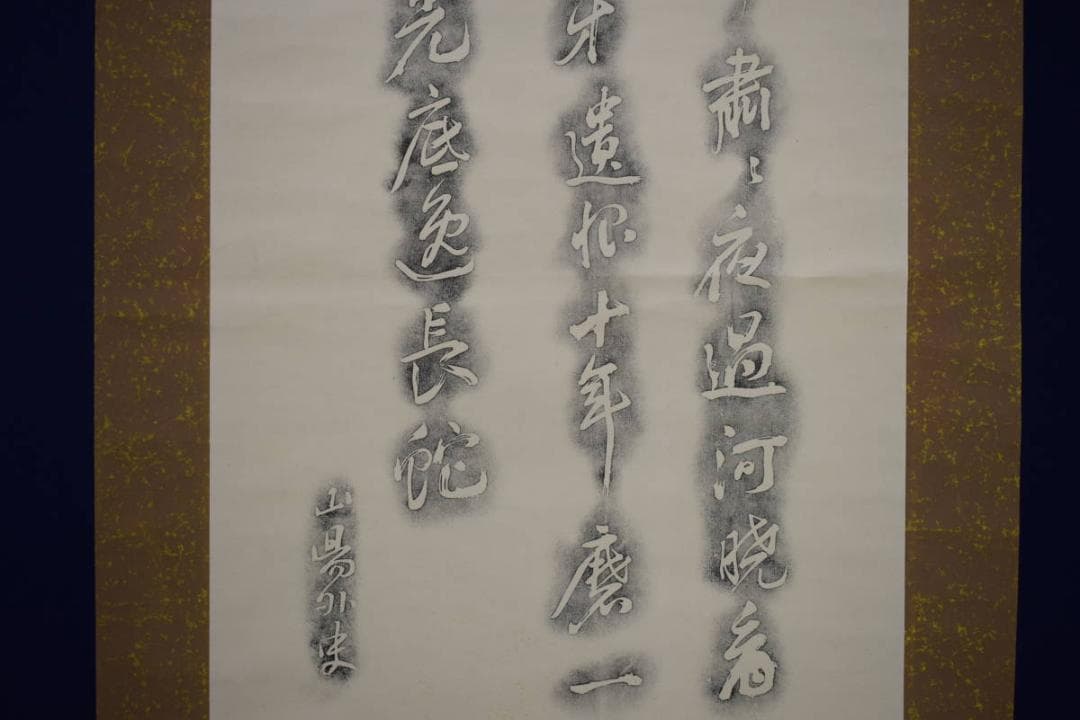 肅〻夜過河曉看
牙遺恨十年磨一
光底逸長蛇
山陽外史